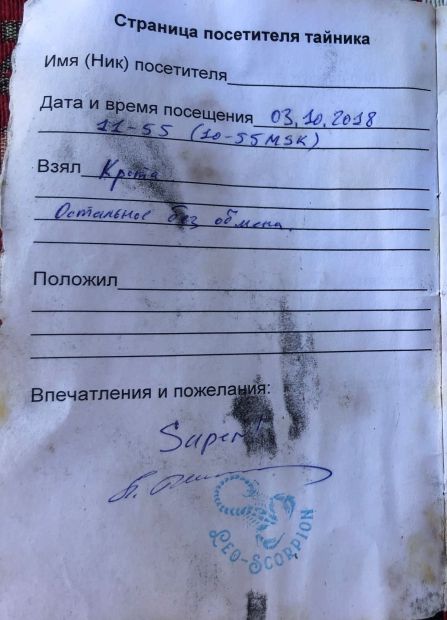 Страница посетителя тайника
Имя (Ник) посетителя
Дата и время посещения 03.10.2018
11-55 (10-55 MSK)
Взял Крота
Остальное без обмена.
Положил
Впечатления и пожелания:
Super!
LEO-SCORPION